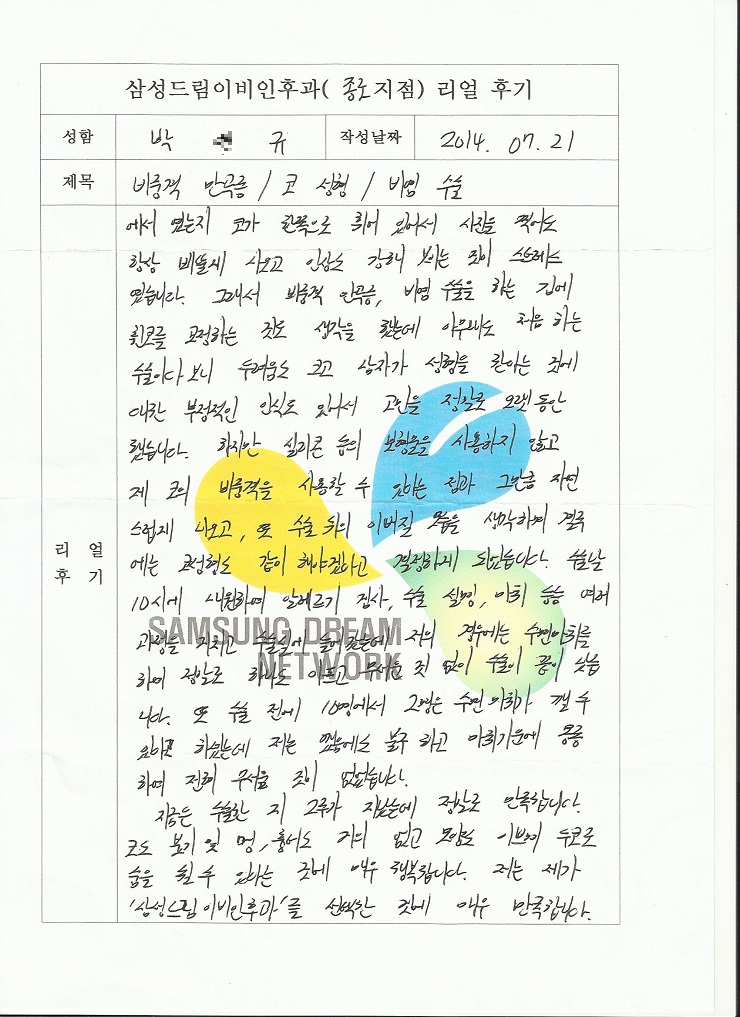 삼성드림이비인후과( 종로지점) 리얼 후기
성함 박 규 작성날짜 2014. 07. 21
제목 비중격 만곡증 / 코 성형 / 비염 수술
에서 였는지 코가 한쪽으로 휘어 있어서 사진을 찍어도
항상 삐뚤게 나오고 인상도 강해 보이는 것이 스트레스
였습니다. 그래서 비중격 만곡증, 비염 수술을 하는 김에
휜코를 교정하는 것도 생각을 했는데 아무래도 처음 하는
수술이다 보니 두려움도 크고 남자가 성형을 한다는 것에
대한 부정적인 인식도 있어서 고민을 정말로 오랫동안
했습니다. 하지만 실리콘 등의 보형물을 사용하지 않고
제 코의 비중격을 사용할 수 있다는 점과 그만큼 자연
스럽게 나오고, 또 수술 뒤의 이뻐질 모습을 생각하며 결국
에는 코성형도 같이 해야겠다고 결정하게 되었습니다. 수술날
리 얼
후 기
10시에 내원하여 알레르기 검사, 수술 설명, 마취 등등 여러
과정을 거치고 수술실에 들어갔는데 저의 경우에는 수면마취를
SAMSUNG DREAM
NETWORK
하여 정말로 하나도 아프고 무서운 것 없이 수술이 끝이 났습
니다. 또 수술 전에 10명에서 2명은 수면마취가 깰 수
있다고 하셨는데 저는 깼음에도 불구 하고 마취기운에 몽롱
하여 전혀 무서울 것이 없었습니다.
지금은 수술한 지 2주가 지났는데 정말로 만족합니다.
코도 붓기 및 멍, 흉터도 거의 없고 모양도 이쁘며 두코로
숨을 쉴 수 있다는 것에 매우 행복합니다. 저는 제가
'삼성드림이비인후과'를 선택한 것에 매우 만족합니다.